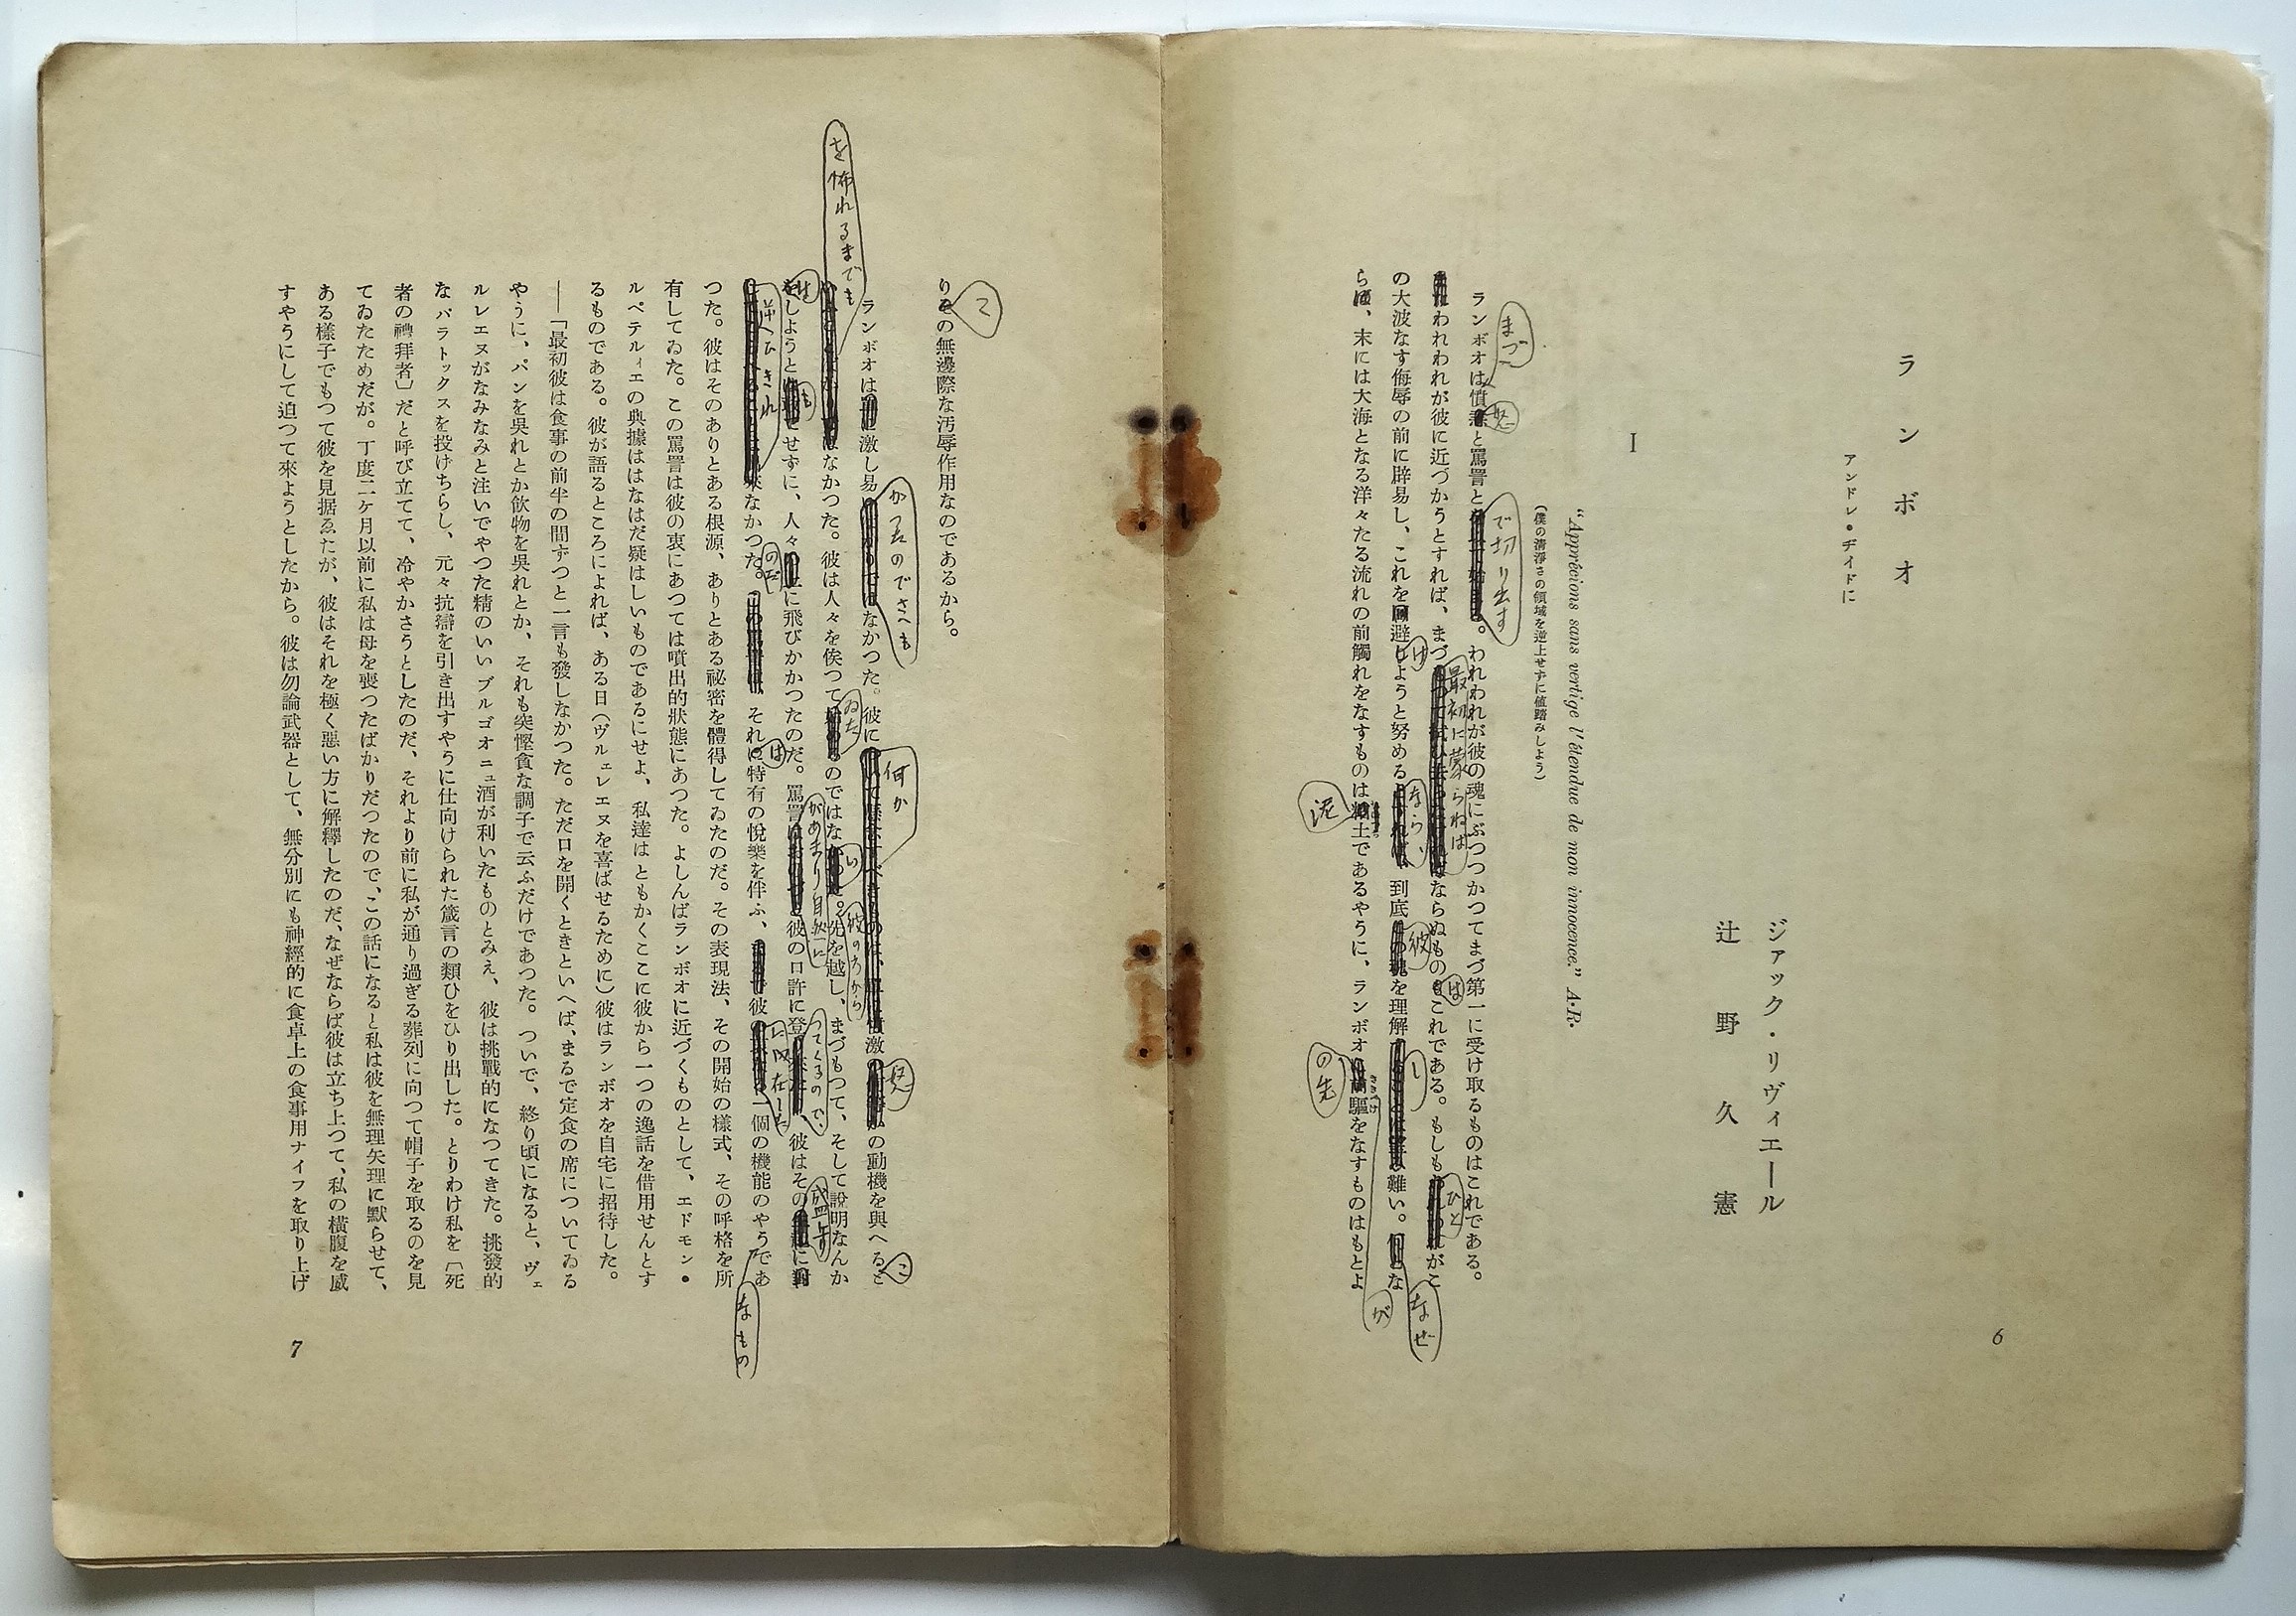 6
ランボオ
アンドレ・ヂイドに
ジァック・リヴィエール
辻野久憲
I
“Apprécions sans vertige l'étendue de mon innocence.” A.R.
(僕の清淨さの領域を逆上せずに値踏みしよう)
まづ
怒
で切り出す
ランボオは憤 と罵詈と 。われわれが彼の魂にぶつつかつてまづ第一に受け取るものはこれである。
最初に蒙らねば
は
ひと
われわれが彼に近づかうとすれば、まづ ならぬもの これである。もしも がこ
け
なら、
彼
し
なぜ
の大波なす侮辱の前に辟易し、これを 避 ようと努める 到底 を理解 難い。 な
泥
の先
が
ら 、末には大海となる洋々たる流れの前觸れをなすものは 土であるやうに、ランボオ 驅をなすものはもとよ
こ
り の無邊際な汚辱作用なのであるから。
か
のでさへも
何か
怒
こ
ランボオは 激し易 なかつた。彼に 激 の動機を與へる
を怖れるまでも
ゐた
い
彼の方から
なかつた。彼は人々を俟つて のではな 。先を越し、まづもつて、そして說明なんか
せ
も
があまり自然に
つてくるので、
盛
しようと せずに、人々 に飛びかかつたのだ。罵詈 彼の口許に登 、彼はその に
ひきれ
のだ
は
なもの
なかつた。 それ 特有の悅樂を伴ふ、 彼 一個の機能のやうであ
つた。彼はそのありとある根源、ありとある祕密を體得してゐたのだ。その表現法、その開始の樣式、その呼格を所
有してゐた。この罵詈は彼の衷にあつては噴出的狀態にあつた。よしんばランボオに近づくものとして、エドモン・
ルペテルィエの典據ははなはだ疑はしいものであるにせよ、私達はともかくここに彼から一つの逸話を借用せんとす
るものである。彼が語るところによれば、ある日(ヴルェレエヌを喜ばせるために)彼はランボオを自宅に招待した。
──「最初彼は食事の前半の間ずつと一言も發しなかつた。ただ口を開くときといへば、まるで定食の席についてゐる
やうに、パンを吳れとか飮物を吳れとか、それも突慳貪な調子で云ふだけであつた。ついで、終り頃になると、ヴェ
ルレエヌがなみなみと注いでやつた精のいいブルゴオニュ酒が利いたものとみえ、彼は挑戰的になつてきた。挑發的
なパラトックスを投げちらし、元々抗辯を引き出すやうに仕向けられた箴言の類ひをひり出した。とりわけ私を〔死
者の禮拜者〕だと呼び立てて、冷やかさうとしたのだ、それより前に私が通り過ぎる葬列に向つて帽子を取るのを見
てゐたためだが。丁度二ケ月以前に私は母を喪つたばかりだつたので、この話になると私は彼を無理矢理に默らせて、
ある樣子でもつて彼を見据ゑたが、彼はそれを極く惡い方に解釋したのだ、なぜならば彼は立ち上つて、私の橫腹を威
すやうにして迫つて來ようとしたから。彼は勿論武器として、無分別にも神經的に食卓上の食事用ナイフを取り上げ
7